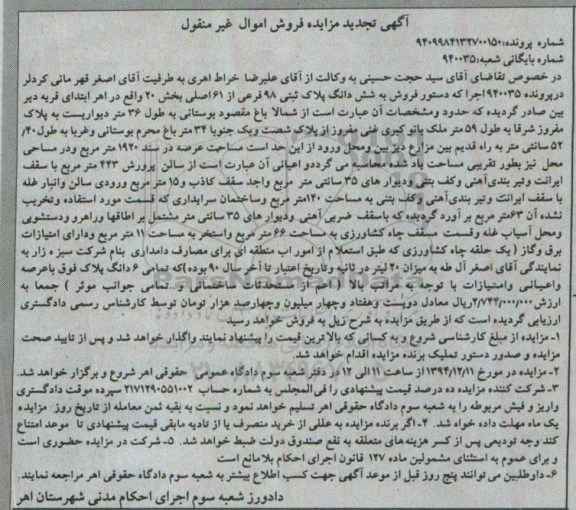 آگهی تجدید مزایده فروش اموال غیر منقول
شماره پرونده:۹۴۰۹۹۸۴۱۳۲۷۰۰۱۵۰
شماره بایگانی شعبه:۹۴۰۰۳۵
در خصوص تقاضای آقای سید حجت حسینی به وکالت از آقای علیرضا خراط اهری به طرفیت آقای اصغر قهر مانی کردلر
درپرونده ۹۴۰۰۳۵اجرا که دستور فروش به شش دانگ پلاک ثبتی ۹۸ فرعی از ۶۱ اصلی بخش ۲۰ واقع در اهر ابتدای قریه دیر
بین صادر گردیده که حدود ومشخصات آن عبارت است از شمالا باغ مقصود بوستانی به طول ۳۶ متر دیواریست به پلاک
مفروز شرقا به طول ۵۹ متر ملک بانو کبری غنی مفروز از پلاک شصت ویک جنوبا ۳۴ متر باغ محرم بوستانی وغربا به طول ۴۰/
۵۲ سانتی متر به راه قدیم بین مزارع دیز بین ومحل ورود از این حد است مساحت عرصه در سند ۱۹۲۰ متر مربع ودر مساحی
محل نیز بطور تقریبی مساحت یاد شده محاسبه می گرددو اعیانی آن عبارت است از سالن پرورش ۴۴۳ متر مربع با سقف
ایرانت وتیر بندی آهنی وکف بتنی ودیوار های ۳۵ سانتی متر مربع واجد سقف کاذب و۱۵ متر مربع ورودی سالن وانبار غله
با سقف ایرانت وتیر بندی آهنی وکف بتنی به مساحت ۱۴۰متر مربع وساختمان سرایداری که قسمت مورد استفاده وتخریب
نشده آن ۶۳متر مربع بر آورد گردیده که باسقف ضربی آهنی ودیوار های ۳۵ سانتی متر مشتمل بر اطاقها وراهرو ودستشویی
ومحل آسیاب غله وقسمت مسقف چاه کشاورزی به مساحت ۶۶ متر مربع واستخر به مساحت ۱۱ متر مربع ودارای امتیازات
برق وگاز ( یک حلقه چاه کشاورزی که طبق استعلام از امور اب منطقه ای برای مصارف دامداری بنام شرکت سبزه زار به
نمایندگی آقای اصغر آل طه به میزان ۲۰ لیتر در ثانیه وتاریخ اعتبار تا آخر سال ۹۰ بوده )که تمامی ۶ دانگ پلاک فوق باعرصه
واعیانی وامتیازات با توجه به مراتب بالا از قدمت مستحدثات ساختمانی و تمامی جوانب موثر ) جمعا به
ارزش ۲/۷۴۴/۰۰۰/۰۰۰ریال معادل دویست وهفتاد وچهار میلیون وچهارصد هزار تومان توسط کارشناس رسمی دادگستری
ارزیابی گردیده است که از طریق مزایده به شرح زیل به فروش خواهد رسید
۱-مزایده از مبلغ کارشناسی شروع و به کسانی که بالاترین قیمت را پیشنهاد نمایند واگذار خواهد شد و پس از تایید صحت
مزایده و صدور دستور تملیک برنده مزایده اقدام خواهد شد.
۲-مزایده در مورخ ۱۳۹۴/۱۲/۱۱ از ساعت ۱۱ الی ۱۲ در دفتر شعبه سوم دادگاه عمومی حقوقی اهر شروع و برگزار خواهد شد.
۳-شرکت کننده مزایده ده درصد قیمت پیشنهادی را فی‌المجلس به شماره حساب ۲۱۷۱۲۹۰۵۵۱۰۰۲ سپرده موقت دادگستری
واریز و فیش مربوطه را به شعبه سوم دادگاه حقوقی اهر تسلیم خواهد نمود و نسبت به بقیه ثمن معامله از تاریخ روز مزایده
یک ماه مهلت داده خواه شد. ۴-اگر برنده مزایده به عللی از خرید منصرف یا از تادیه مابقی قیمت پیشنهادی تا موعد امتناع
کند وجه تودیعی پس از کسر هزینه های متعلقه به نفع صندوق دولت ضبط خواهد شد. ۵-شرکت در مزایده حضوری است
و برای عموم به استثنای مشمولین ماده ۱۲۷ قانون اجرای احکام بلامانع است
۶-داوطلبین می توانند پنج روز قبل از موعد آگهی جهت کسب اطلاع بیشتر به شعبه سوم دادگاه حقوقی اهر مراجعه نمایند.
دادورز شعبه سوم اجرای احکام مدنی شهرستان اهر